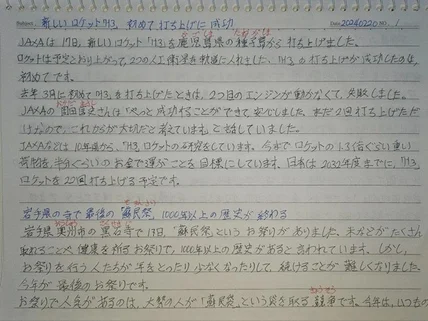 Subject. 新しいロケットH3、初めて打ち上げに成功 Date. 20240220 No. 1
JAXAは17日、新しいロケット「H3」を鹿児島県の種子島から打ち上げました。
ロケットは予定どおり上がって、2つの人工衛星を軌道に入れました。「H3」の打ち上げが成功したのは、
初めてです。
去年3月に初めて「H3」を打ち上げたときは、2つ目のエンジンが動かなくて、失敗しました。
JAXAの岡田匡史さんは「やっと成功することができて、安心しました。まだ2回打ち上げただ
けなので、これからが大切だと考えています」と話していました。
JAXAなどは10年前から、「H3」ロケットの研究をしています。今までロケットの1.3倍ぐらい重い
荷物を、半分ぐらいのお金で運ぶことを目標にしています。日本は2032年度までに、「H3」
ロケットを22回打ち上げる予定です。
岩手県の寺で最後の「蘇民祭」 1000年以上の歴史が終わる
岩手県奥州市の黒石寺で17日、「蘇民祭」というお祭りがありました。米などがたくさん
取れることや健康を祈るお祭りで、1000年以上の歴史があると言われています。しかし、
お祭りを行う人たちが年をとったり少なくなったりして、続けることが難しくなりました。
今年が最後のお祭りです。
お祭りで人気があるのは、大勢の人が「蘇民袋」という袋を取る競争です。今年は、いつもの